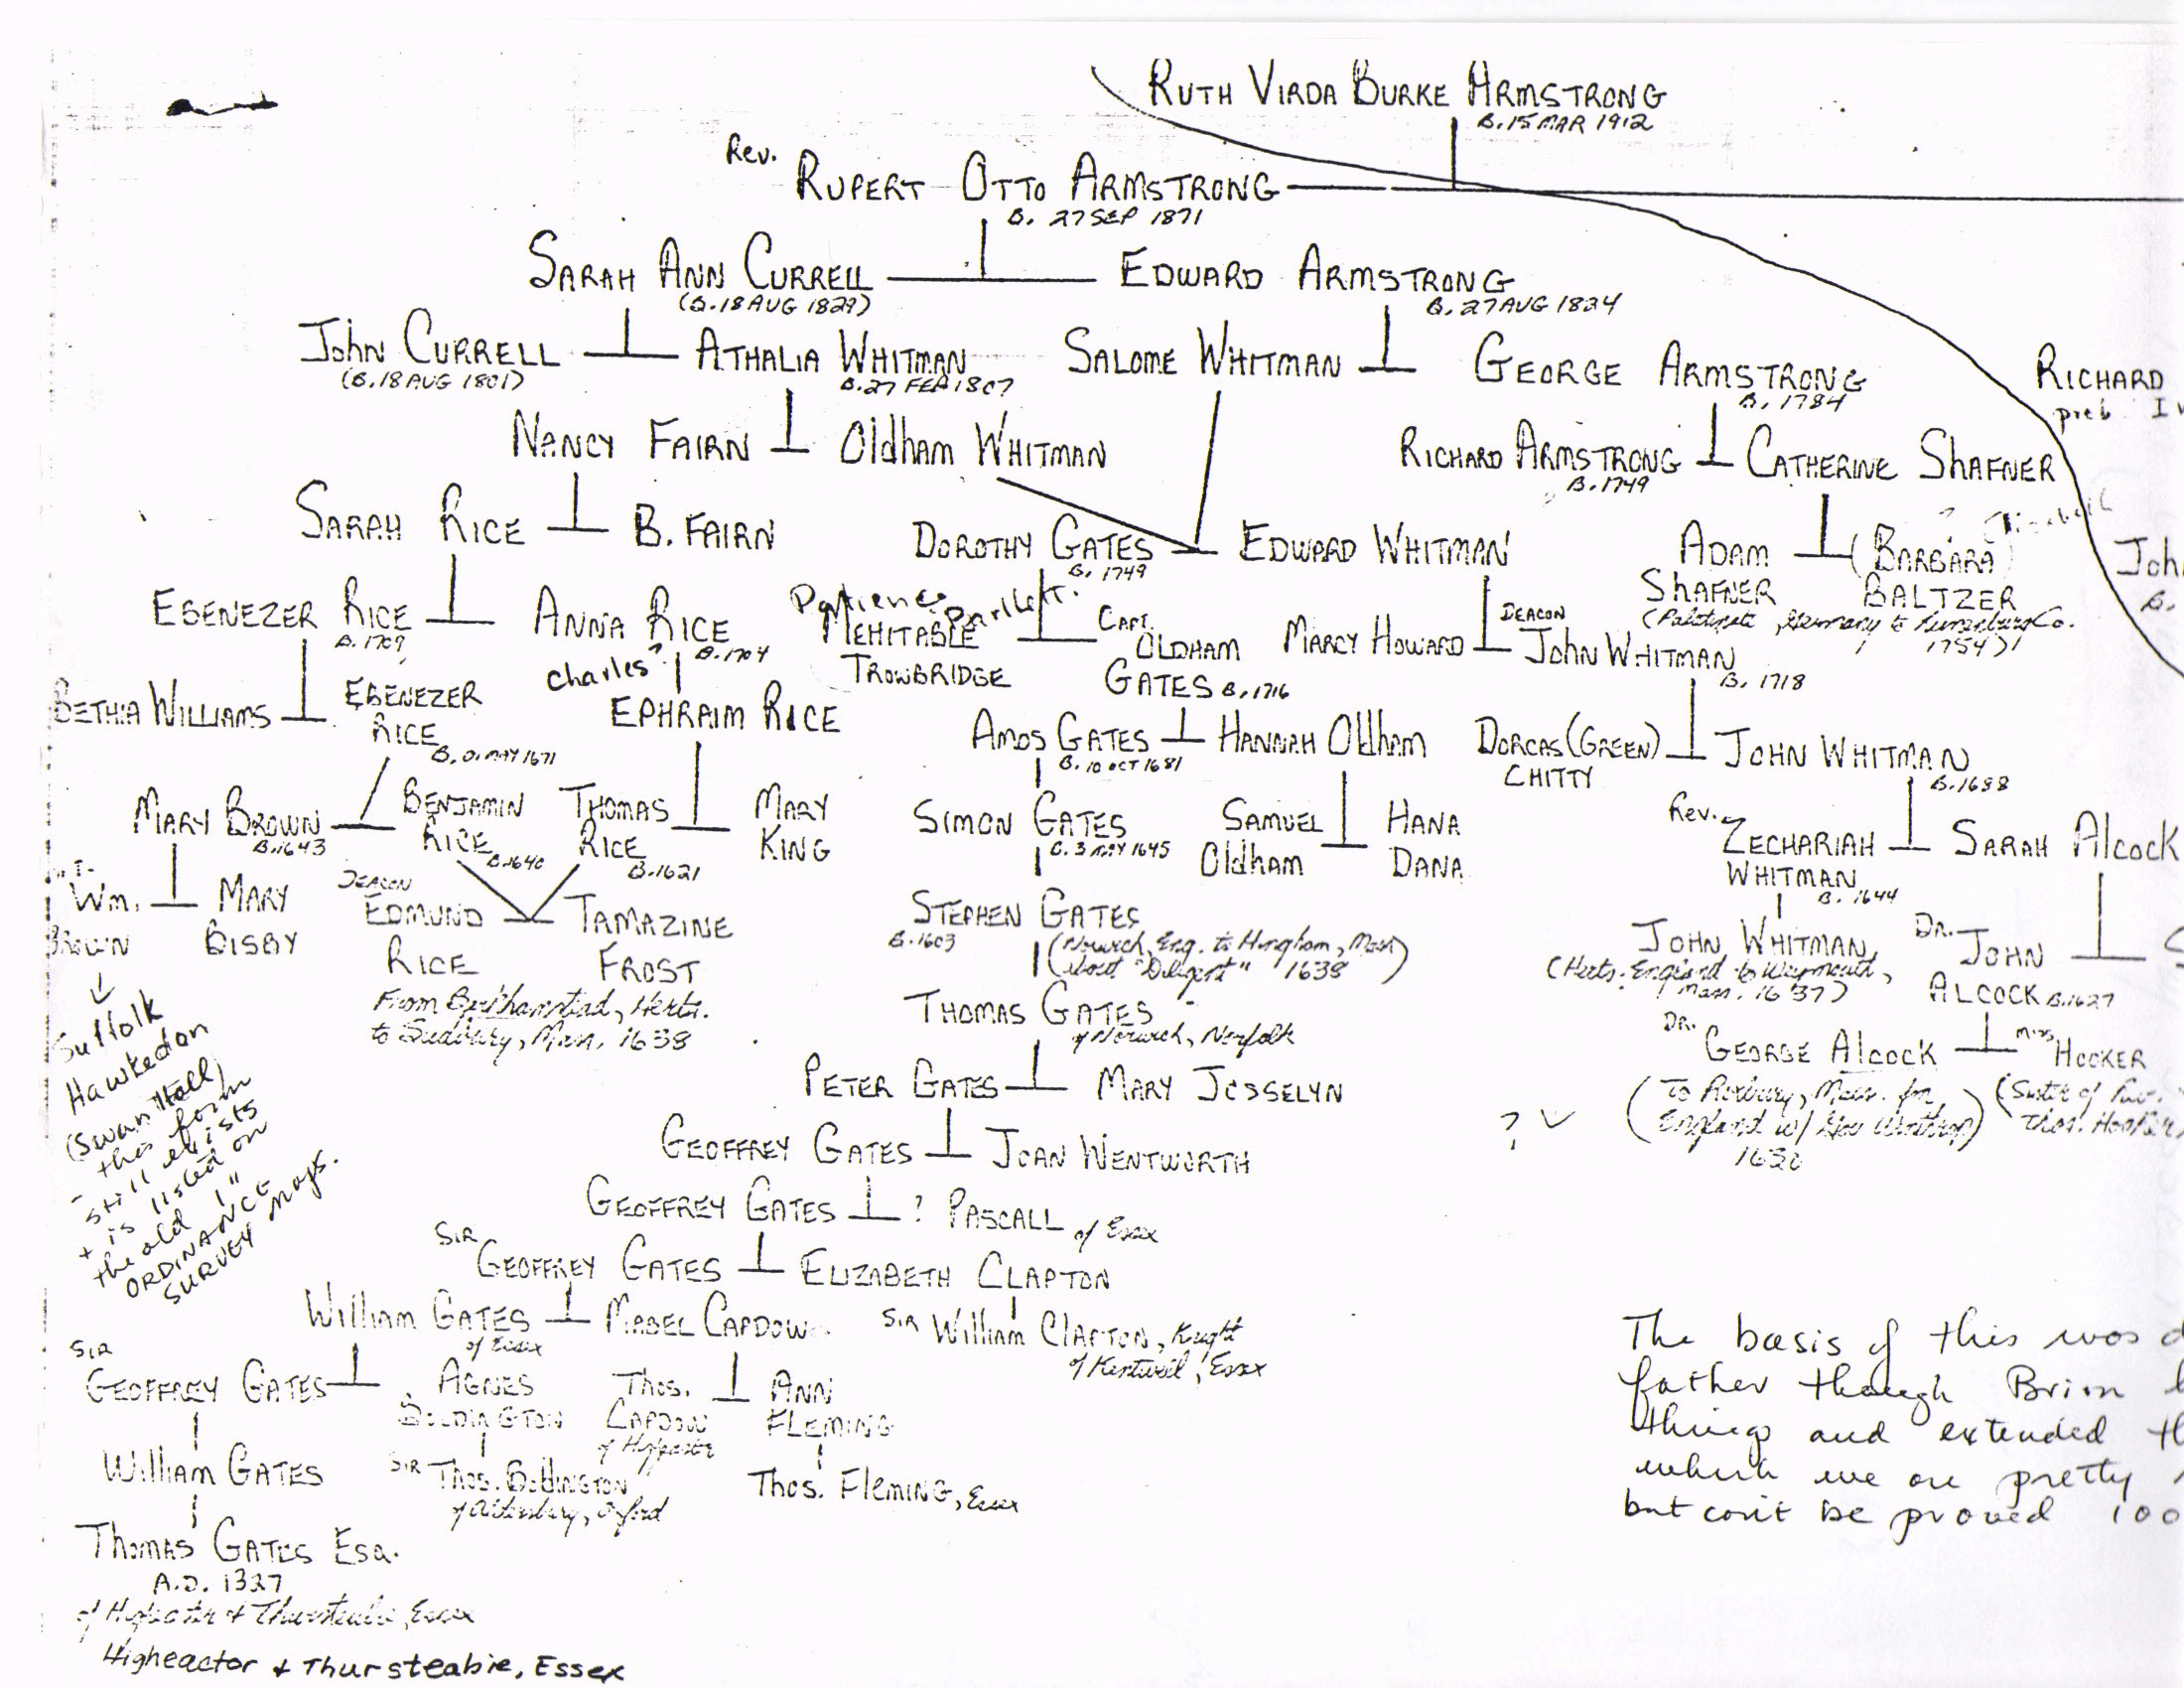 RUTH VIRDA BURKE ARMSTRONG
B. 15 MAR 1912
Rev.
RUPERT OTTO ARMSTRONG
B. 27 SEP 1871
SARAH ANN CURRELL
EDWARD ARMSTRONG
(B. 18 AUG 1829)
B. 27 AUG 1824
John CURRELL
ATHALIA WHITMAN
SALOME WHITMAN
GEORGE ARMSTRONG
RICHARD
(B. 18 AUG 1801)
B. 27 FEB 1807
B. 1784
NANCY FAIRN
Oldham WHITMAN
RICHARD ARMSTRONG
CATHERINE SHAFNER
B. 1749
SARAH RICE
B. FAIRN
DOROTHY GATES
EDWARD WHITMAN
ADAM
(BARBARA)
B. 1749
SHAFNER
BALTZER
EBENEZER RICE
ANNA RICE
Patience Bartlett.
MEHITABLE
CAPT.
OLDHAM
MARCY HOWARD
DEACON
JOHN WHITMAN
(Palatinate, Germany to Lunenburg Co.
1754)
B. 1709
B. 1704
TROWBRIDGE
GATES B. 1716
B. 1718
charles?
BETHIA WILLIAMS
EBENEZER
RICE
EPHRAIM RICE
AMOS GATES
HANNAH Oldham
DORCAS (GREEN)
CHITTY
JOHN WHITMAN
MAY 1671
B. 10 OCT 1681
B. 1688
MARY BROWN
BENJAMIN
RICE
THOMAS
RICE
MARY
KING
SIMON GATES
SAMUEL
Oldham
HANA
DANA
Rev.
ZECHARIAH
WHITMAN
SARAH Alcock
B. 1643
B. 1640
B. 1621
B. 3 MAY 1645
B. 1644
Wm.
BROWN
MARY
BISBY
DEACON
EDMUND
RICE
TAMAZINE
FROST
STEPHEN GATES
B. 1603
(Norwich, Eng. to Hingham, Mass
about "Diligent" 1638)
JOHN WHITMAN
(Herts. England to Weymouth,
Mass. 1637)
DR.
JOHN
ALCOCK B. 1627
From Berkhamstead, Herts.
to Sudbury, Mass. 1638
THOMAS GATES
of Norwich, Norfolk
DR.
GEORGE Alcock
Miss
HOOKER
(To Roxbury, Mass. fm
England w/ Gov Winthrop)
1630
(Sister of Rev.
Thos. Hooker)
Suffolk
Hawkedon
(Swan Hall)
- this form
still exists
+ is listed on
the old 1"
ORDINANCE
SURVEY maps.
PETER GATES
MARY JOSSELYN
? ✓
GEOFFREY GATES
JOAN WENTWORTH
GEOFFREY GATES
? PASCALL of Essex
SIR
GEOFFREY GATES
ELIZABETH CLAPTON
William GATES
of Essex
MABEL CAPDOW
SIR William CLAPTON, Knight
of Kentwell, Essex
SIR
GEOFFREY GATES
AGNES
Thos.
CAPDOW
ANN
FLEMING
William GATES
SIR Thos.
Oxford
Thos. FLEMING, Essex
Thomas GATES Esq.
A.D. 1327
Essex
Higheactor + Thursteabie, Essex
The basis of this was
father though Brian
things and extended
which we are pretty
but can't be proved 100